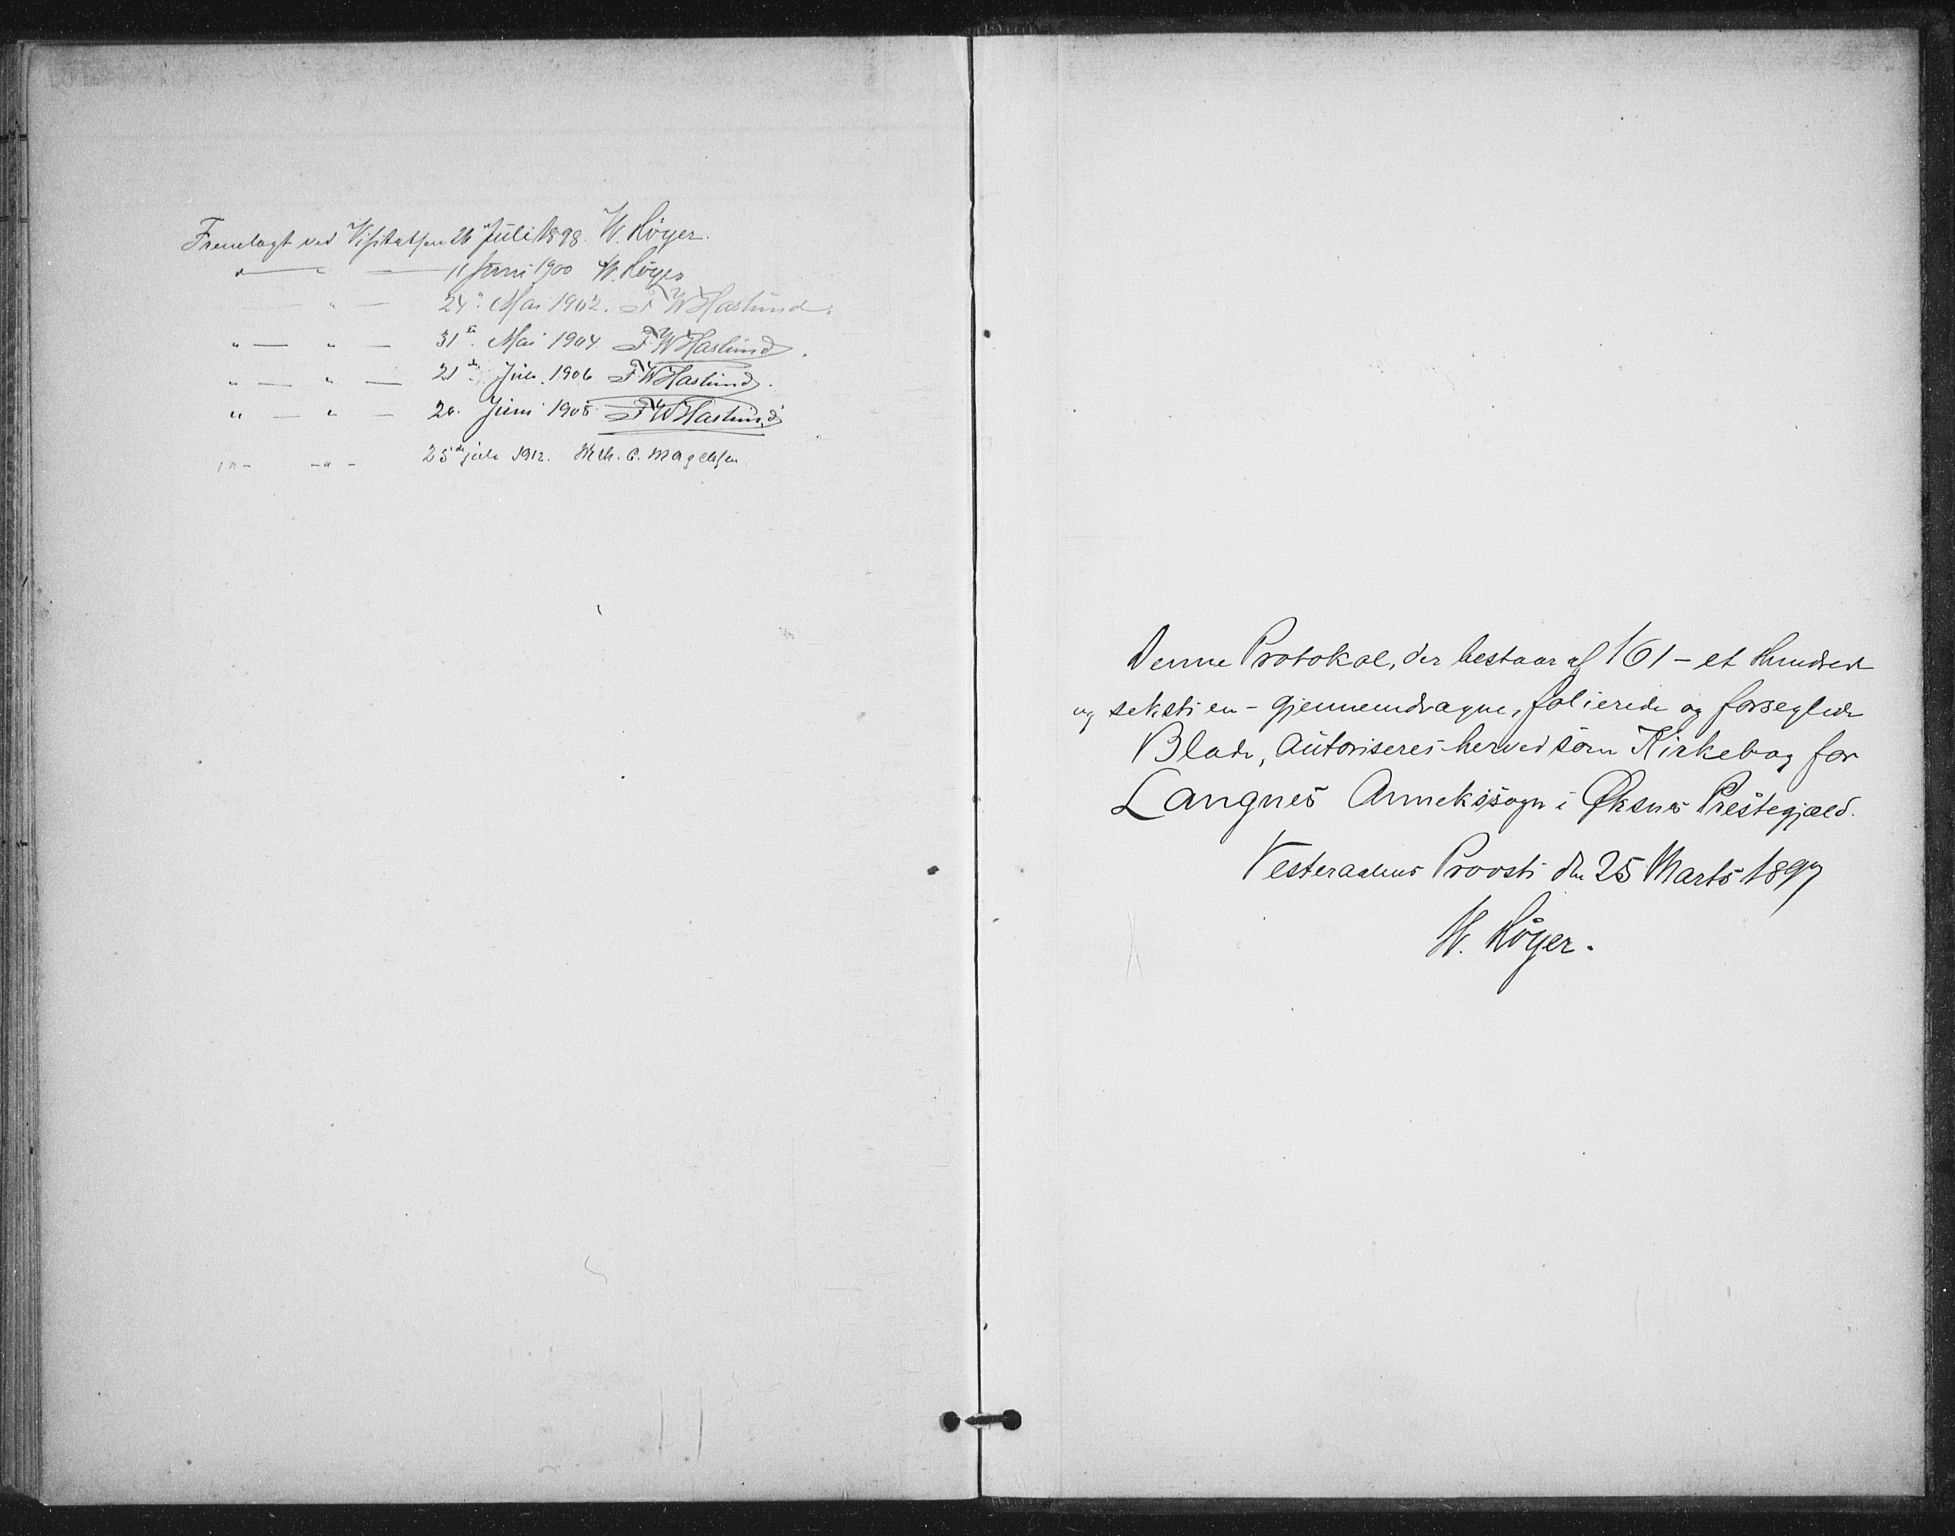 Fremlagt ved Visitatsen 26 Juli 1898. W. Høyer.
" — " — 11 Juni 1900 W. Høyer
— " — 24de Mai 1902. F W Haslund.
" — " — 31te Mai 1904 F W Haslund.
" — " — 21de Juli 1906 F W Haslund.
" — " — 20. Juni 1908 F W Haslund
" - - " - 25de juli 1912. C. Magelssen.
Denne Protokol, der bestaar af 161 - et Hundrede
og seksti en - gjennemdragne, folierede og forseglede
Blade, autoriseres herved som Kirkebog for
Langnes Annekssogn i Øksnes Prestegjæld.
Vesteraalens Provsti den 25 Marts 1897
W. Høyer.